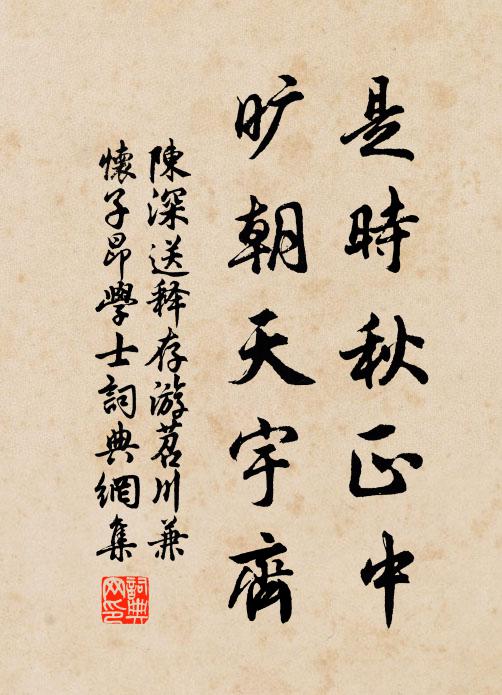 是時秋正中
旷朝天宇齊
陳深送释存游苕川兼
懷子昂學士詞典網集
詞典网印